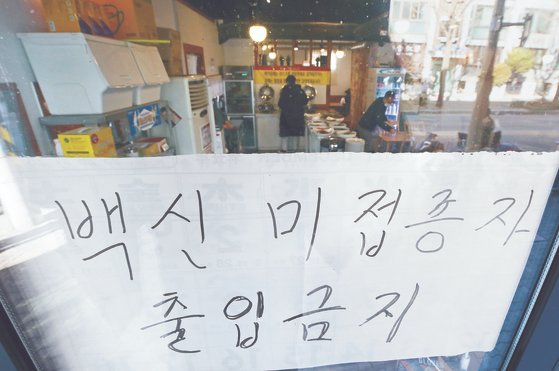 백신 미접종자
출입금지